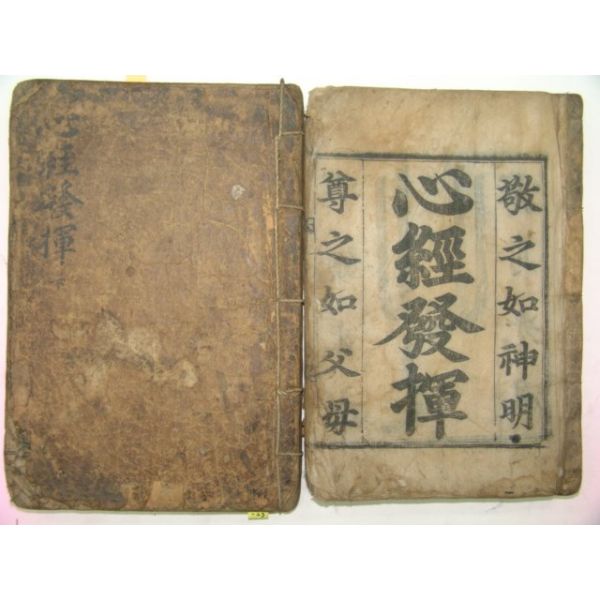 心經發揮 下
敬之如神明
心經發揮
尊之如父母